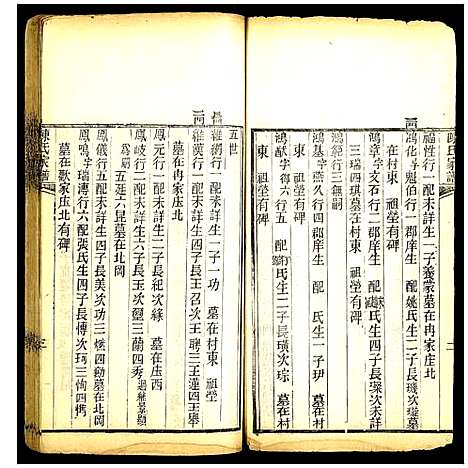 陳氏家譜
福性行一配未詳生一子養蒙墓在冉家庄北
鴻化字魁伯行一郡庠生 配姚氏生二子
在村東 祖塋有碑
鴻章字文石行二郡庠生 配 氏生二子長璨次 墓
三瑞四琪墓在村東 祖塋有碑
鴻範行三無嗣
鴻基字燕久行四郡庠生 配 氏生一子玥 墓在村
東 祖塋有碑
鴻猷字得六行五 配 氏生二子長璜次琮 墓在村
東 祖塋有碑
二
五世
維綱行一配未詳生一子一功 墓在村東 祖塋
維漢行二配未詳生四子長王召次王聘三王蓮四王
墓在冉家庄北
鳳元行一配未詳生二子長紀次緣 墓在庄西
鳳岐行二配未詳生六子長玉次璽三蘭四秀
五廷六昆墓在北岡
鳳儀行五配未詳生四子長美次功三 四勛墓在北岡
鳳鳴字瑞溥行六配張氏生四子長博次珂三恂四儁
墓在歡家庄北 有碑
陳氏家譜
三